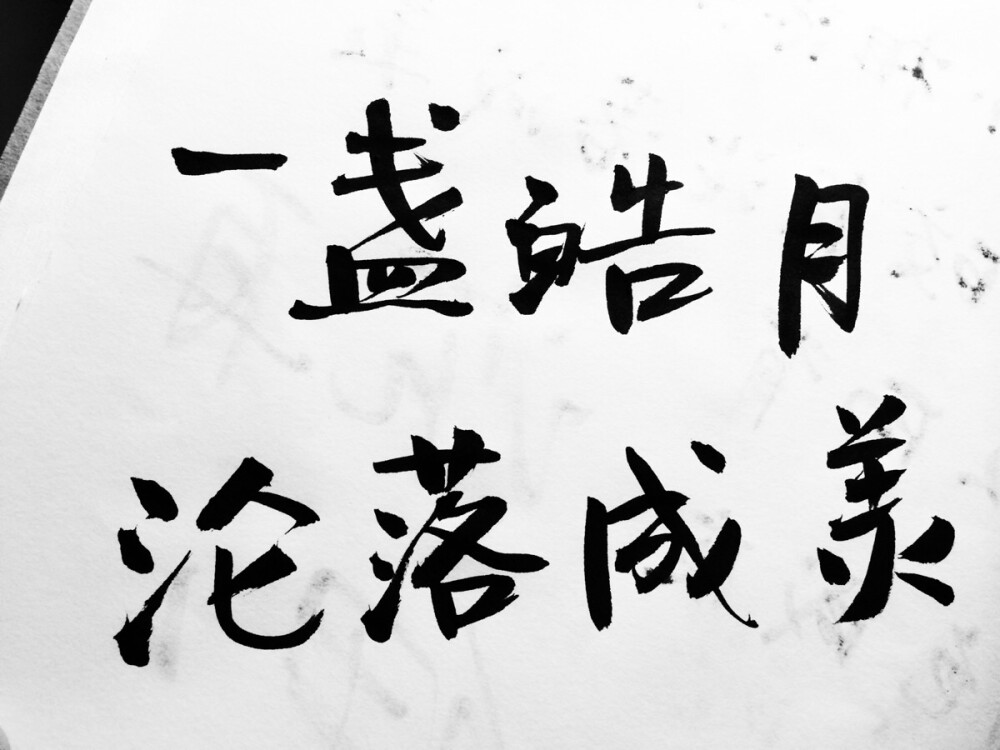 一盏皓月
沦落成美